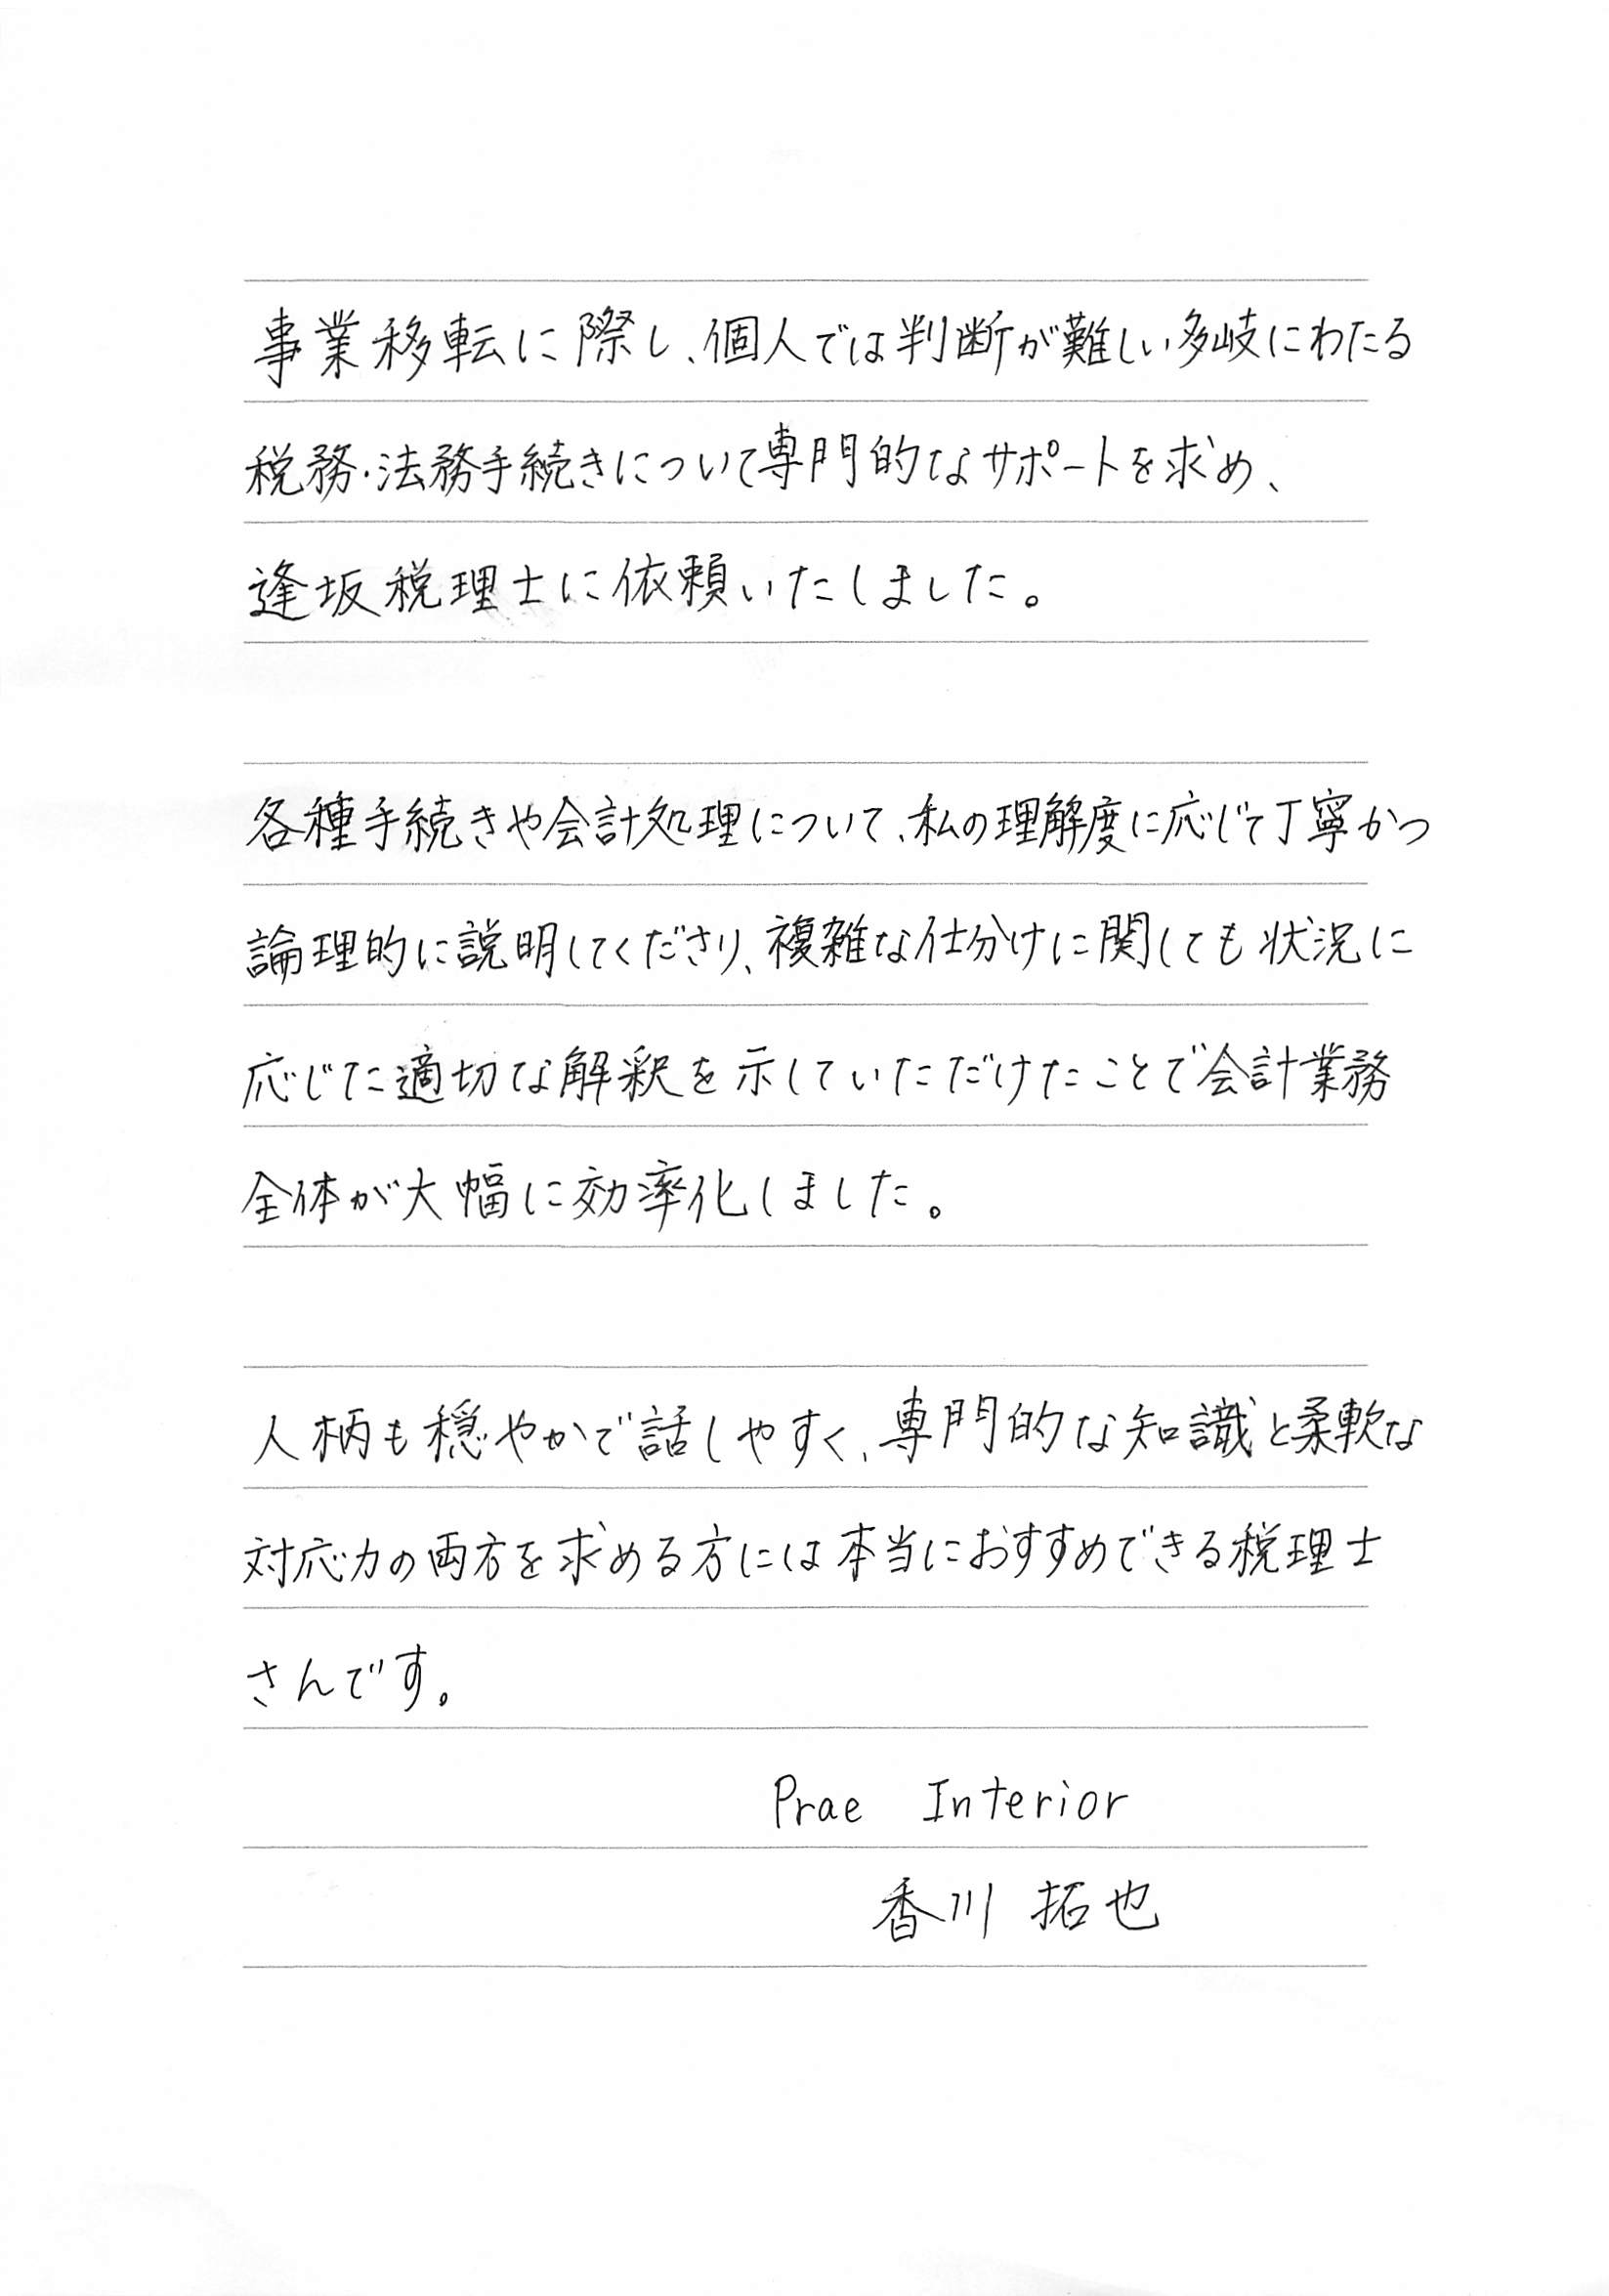 事業移転に際し、個人では判断が難しい多岐にわたる
税務・法務手続きについて専門的なサポートを求め、
逢坂税理士に依頼いたしました。
各種手続きや会計処理について、私の理解度に応じて丁寧かつ
論理的に説明してくださり、複雑な仕分けに関しても状況に
応じた適切な解釈を示していただけたことで会計業務
全体が大幅に効率化しました。
人柄も穏やかで話しやすく、専門的な知識と柔軟な
対応力の両方を求める方には本当におすすめできる税理士
さんです。
Prae Interior
香川 拓也